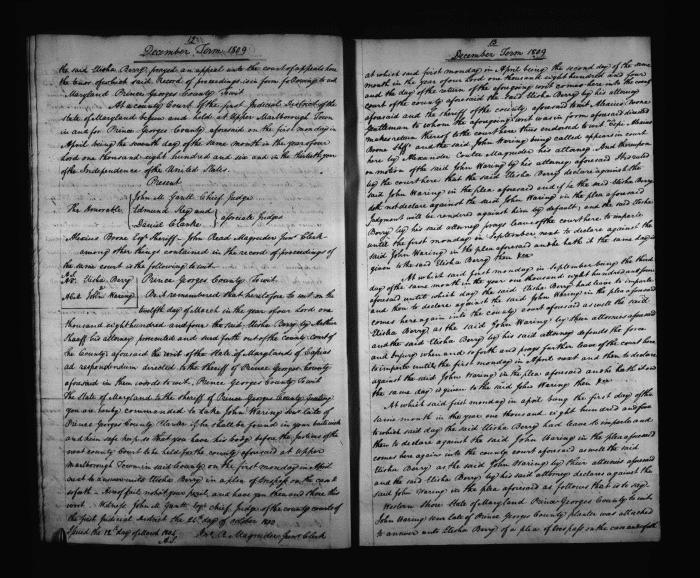 12
December Term 1809
the said Elisha Berry prayed an appeal unto the court of appeals here
the tenor of which said Record of proceedings is in form following to wit
Maryland Prince Georges County Towit
At a county Court of the first Judicial District of the
state of Maryland begun and held at Upper Marlborough Town
in and for Prince Georges County aforesaid on the first monday in
April being the seventh day of the same month in the year of our
Lord one thousand eight hundred and six and in the thirtieth year
of the Independence of the United States.
Present
John M. Gantt Chief Judge
The Honorable Edmund Key and
David Clarke associate Judges
Alexius Boone Esqr Sheriff - John Read Magruder Junr Clerk
among other things contained in the record of proceedings of
the same court is the following to wit
Elisha Berry Prince Georges County Towit
John Waring Be it remembered that heretofore to wit on the
twelfth day of March in the year of our lord one
thousand eight hundred and four the said Elisha Berry by
his attorney prosecuted and sued forth out of the county court of
the County aforesaid the writ of the State of Maryland of Capias
ad respondendum directed to the sheriff of Prince Georges County
aforesaid in these words to wit, Prince Georges County Towit
The State of Maryland to the sheriff of Prince Georges County Greeting
you are hereby commanded to take John Waring late of
Prince Georges County Planter if he shall be found in your bailiwick
and him safe keep so that you have his body before the Justices of the
next county Court to be held for the county aforesaid at Upper
marlborough Town in said County on the first monday in April
next to answer unto Elisha Berry in a plea of trespass on the case
&c forth - Hereof fail not at your peril, and have you then and there this
writ. Witness John M. Gantt Esqr chief Judge of the county courts of
the first judicial district the day of October 1803
Issued the 12th day of March 1804
Jno. R. Magruder Junr Clerk
13
December Term 1809
at which said first monday in April being the second day of the same
month in the year of our Lord one thousand eight hundred and four
and the day of the return of the aforegoing writ comes here into the county
court of the county aforesaid the said Elisha Berry by his attorney
aforesaid and the sheriff of the county aforesaid to wit Alexius Boone
Gentleman to whom the aforegoing writ was in form aforesaid directed
makes return thereof to the court here thus endorsed to wit "Cepi Alexius
Boone Shff" and the said John Waring being called appears in court
here by Alexander Contee Magruder his attorney. And thereupon
on motion of the said John Waring by his attorney aforesaid It is ruled
by the court here that the said Elisha Berry declare against the
said John Waring in the plea aforesaid and if he the said Elisha Berry
doth not declare against the said John Waring in the plea aforesaid
Judgment will be rendered against him by default, and the said Elisha
Berry by his said attorney prays leave of the court here to imparle
until the first monday in September next to declare against the
said John Waring in the plea aforesaid and he hath it the same day is
given to the said Elisha Berry then &ca
At which said first monday in september being the third
day of the same month in the year one thousand eight hundred and four
aforesaid until which day the said Elisha Berry had leave to imparle
and then to declare against the said John Waring in the plea aforesaid
comes here again into the county court aforesaid as well the said
Elisha Berry as the said John Waring by their attornies aforesaid
and the said Elisha Berry by his said attorney defends the force
and Injury when and so forth and prays further leave of the court here
to imparle until the first monday in April next and then to declare
against the said John Waring in the plea aforesaid and he hath it and
the same day is given to the said John Waring then &ca
At which said first monday in april being the first day of the
same month in the year one thousand eight hundred and five
to which said day the said Elisha Berry had leave to imparle and
then to declare against the said John Waring in the plea aforesaid
comes here again into the county court aforesaid as well the said
Elisha Berry as the said John Waring by their attornies aforesaid
and the said Elisha Berry by his said attorney declares against the
said John Waring in the plea aforesaid as follows that is to say
Western Shore State of Maryland Prince Georges County to wit
John Waring late of Prince Georges County planter was attached
to answer unto Elisha Berry of a plea of trespass on the case and so forth